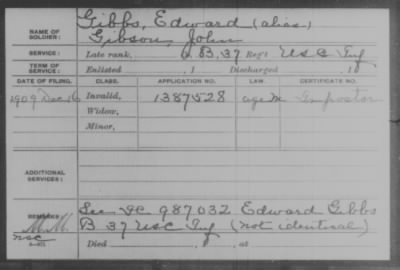 NAME OF SOLDIER: Gibbs, Edward (alias)
Gibson, John
SERVICE: Late rank, B, 37 Reg't U S C Inf
TERM OF SERVICE: Enlisted , 1 Discharged , 1
DATE OF FILING. CLASS. APPLICATION NO. LAW CERTIFICATE NO.
1909 Dec Invalid, 1387528 Impostor
Widow,
Minor,
ADDITIONAL SERVICES:
REMARKS: See IC 987032 Edward Gibbs
B 37 USC Inf (not identical)
Died , 1 , at